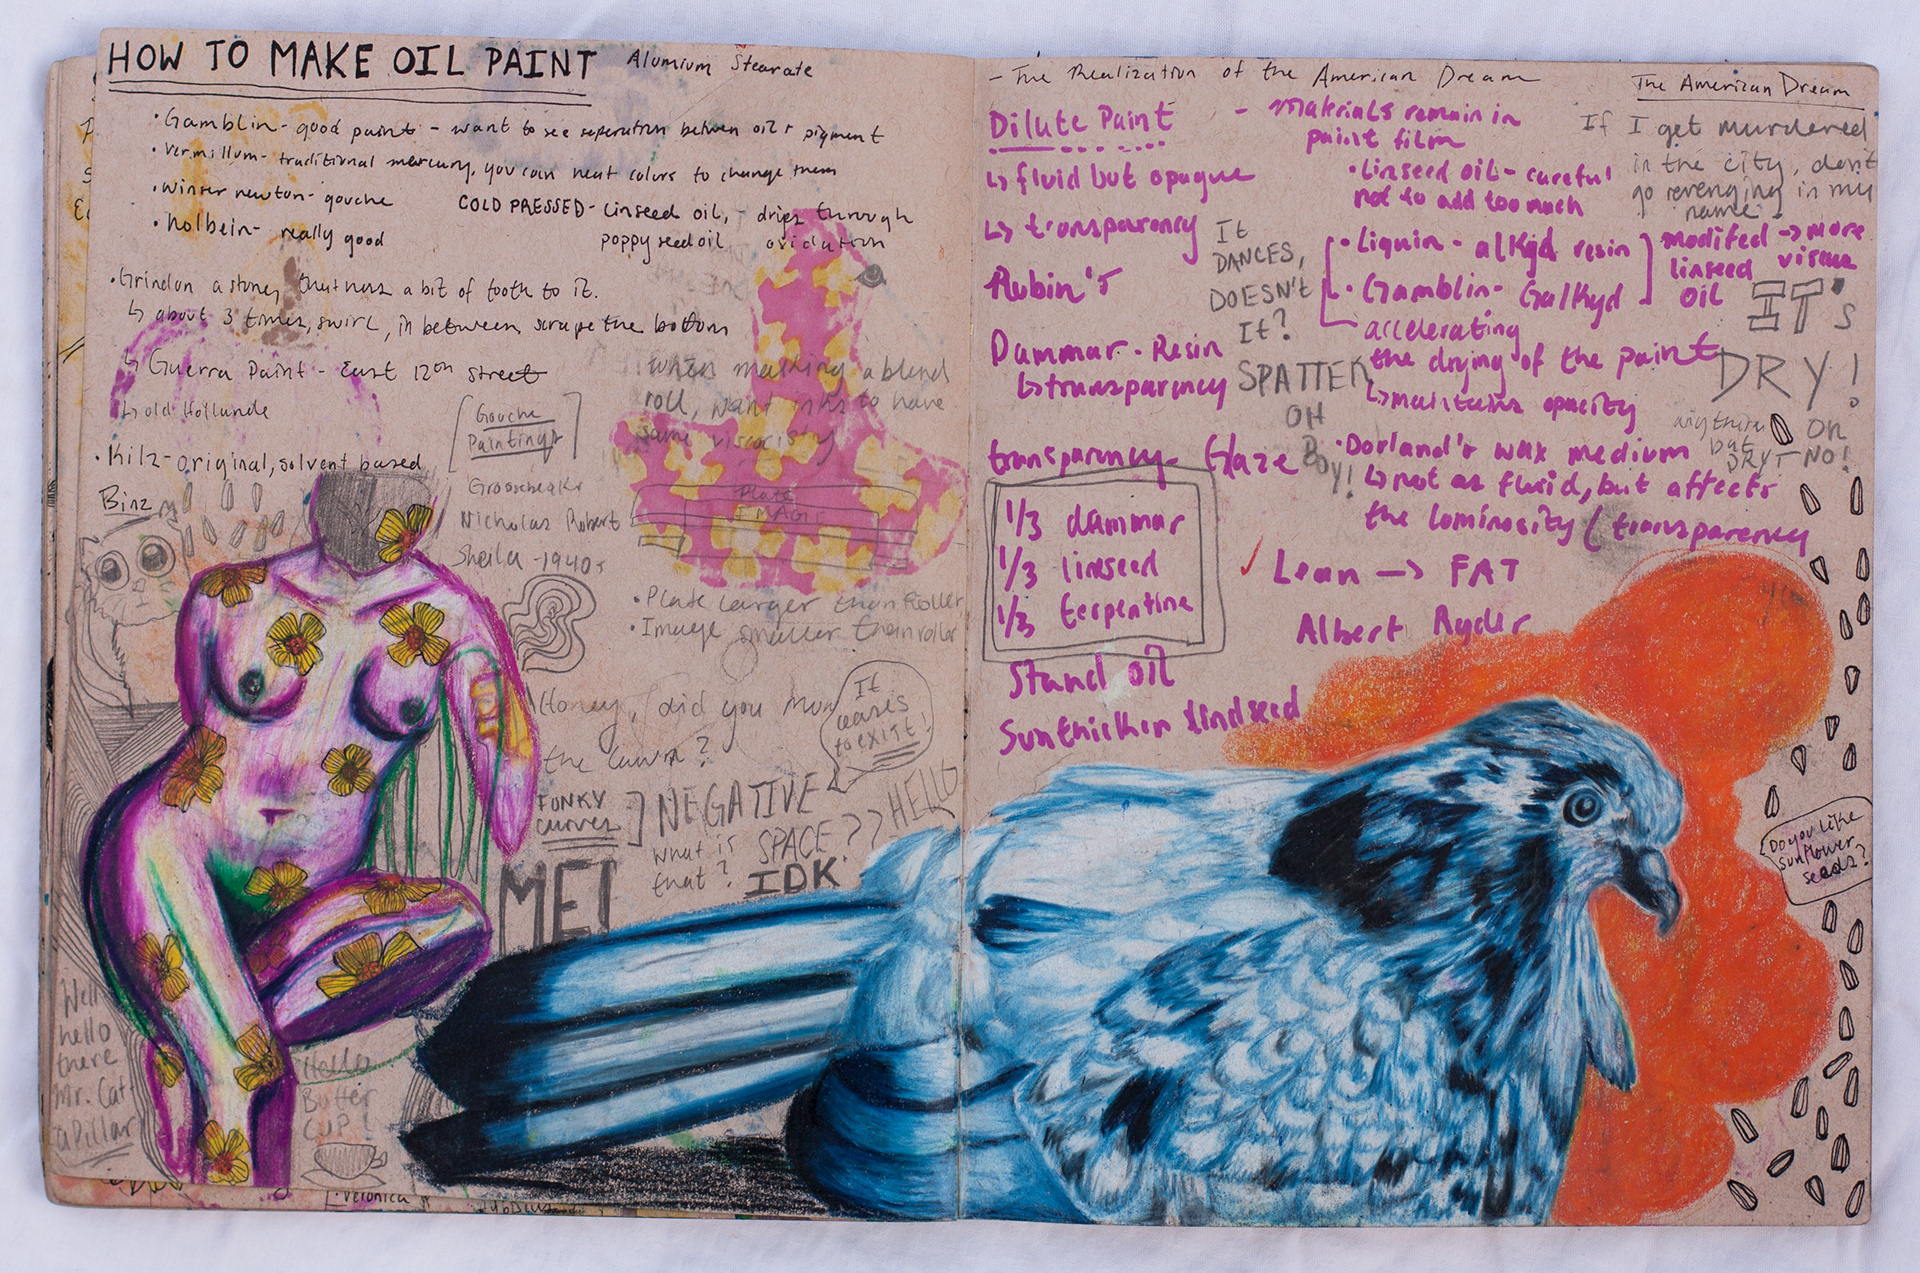 HOW TO MAKE OIL PAINT
Alumium Stearate
• Gamblin - good paint - want to see seperation betwen oil + pigment
• vermillum - traditional mercury, you can heat colors to change them
• winser newton - gouche
• holbein - really good
COLD PRESSED - linseed oil, - drips through
poppyseed oil oxidation
• Grind on a stone, that has a bit of tooth to it.
↳ about 3 times, swirl, in between scrape the bottom
↳ Guerra Paint - East 12th street
↳ old Hollande
• Kilz - original, solvent based
Binz
Gouche
Paintings
Nicholas Robert
Sheila - 1940s
when making a blend
roll, want inks to have
same viscosity
Plate
IMAGE
• Plate larger than Roller,
• Image smaller than roller
Honey, did you mow
the lawn?
It
wants
to exist!
FUNKY
curves
ME!
NEGATIVE
SPACE??
what is
that?
IDK.
HELLO
Well
hello
there
Mr. Cat
apillar
Hello
Butter
CUP!
• Veronica
- The Realization of the American Dream
The American Dream
If I get murdered
in the city, don't
go revenging in my
name.
Dilute Paint
↳ fluid but opaque
↳ transparency
Rubin's
Dammar - Resin
↳ transparency
transparency Glaze
1/3 dammar
1/3 linseed
1/3 terpentine
Stand oil
Sunthicken lindseed
It
DANCES,
DOESN'T
It?
SPATTER
OH
BOY!
- Materials remain in
paint film
• Linseed oil - careful
not to add too much
• Liquin - alkyd resin
• Gamblin - Galkyd
modifed → more
linseed viscus
oil
accelerating
the drying of the paint
↳ maintains opacity
• Dorland's wax medium
↳ not as fluid, but affects
the luminosity / transparency
Lean → FAT
Albert Ryder
IT's
DRY!
anything
but
DRY!
OH
NO!
Do you like
sunflower
seeds?